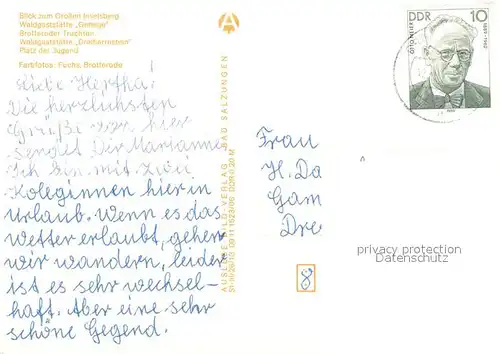 Blick zum Großen Inselsberg
Waldgaststätte „Gehege"
Brotteroder Trachten
Waldgaststätte „Dreiherrenstein"
Platz der Jugend
Farbfotos: Fuchs, Brotterode
Liebe Hertha!
Die herzlichsten
Grüße von hier
sendet Dir Marianne.
Ich bin mit zwei
Koleginnen hier in
Urlaub. Wenn es das
Wetter erlaubt, gehen
wir wandern, leider
ist es sehr wechsel-
haft. Aber eine sehr
schöne Gegend.
A
AUSLESE-BILD-VERLAG · BAD SALZUNGEN
DDR 10
OTTO MEIER
1889-1962
Frau
H. Da
Gam
Dre
privacy protection
Datenschutz